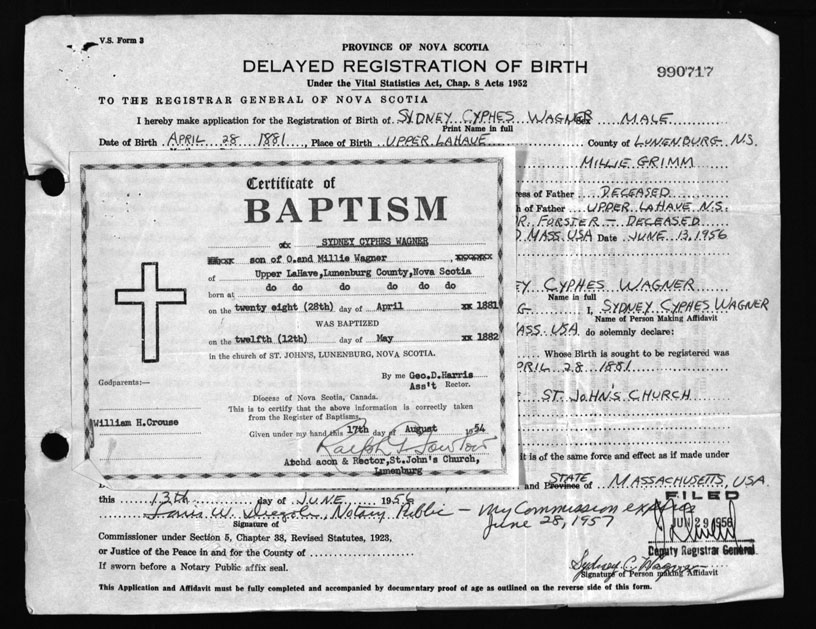 V.S. Form 3
PROVINCE OF NOVA SCOTIA
DELAYED REGISTRATION OF BIRTH
990717
Under the Vital Statistics Act, Chap. 8 Acts 1952
TO THE REGISTRAR GENERAL OF NOVA SCOTIA
I hereby make application for the Registration of Birth of SYDNEY CYPHES WAGNER Sex MALE
Print Name in full
Date of Birth APRIL 28 1881, Place of Birth UPPER LAHAVE County of LUNENBURG N.S.
MILLIE GRIMM
ess of Father DECEASED
h of Father UPPER LAHAVE N.S.
DR. FORSTER - DECEASED
D MASS USA Date JUNE 13, 1956
EY CYPHES WAGNER
Name in full
G I, SYDNEY CYPHES WAGNER
Name of Person Making Affidavit
ASS. USA do solemnly declare:
Whose Birth is sought to be registered was
PRIL 28 1881
ST. JOHN'S CHURCH
it is of the same force and effect as if made under
Certificate of
BAPTISM
SYDNEY CYPHES WAGNER
son of O. and Millie Wagner
of Upper LaHave, Lunenburg County, Nova Scotia
do do do do do
born at
on the twenty eight (28th) day of April 1881
WAS BAPTIZED
on the twelfth (12th) day of May 1882
in the church of ST. JOHN'S, LUNENBURG, NOVA SCOTIA.
By me Geo. D. Harris
Ass't Rector.
Godparents:—
William H. Crouse
Diocese of Nova Scotia, Canada.
This is to certify that the above information is correctly taken
from the Register of Baptisms.
Given under my hand this 17th day of August 1954
& Rector, St. John's Church,
Lunenburg
and Province of STATE MASSACHUSETTS, USA
this 13th day of JUNE 1956
Notary Public - My Commission expires
June 28, 1957
Signature of
FILED
JUN 29 1956
Deputy Registrar General
Commissioner under Section 5, Chapter 38, Revised Statutes, 1923,
or Justice of the Peace in and for the County of
If sworn before a Notary Public affix seal.
Sydney C. Wagner
Signature of Person making Affidavit
This Application and Affidavit must be fully completed and accompanied by documentary proof of age as outlined on the reverse side of this form.